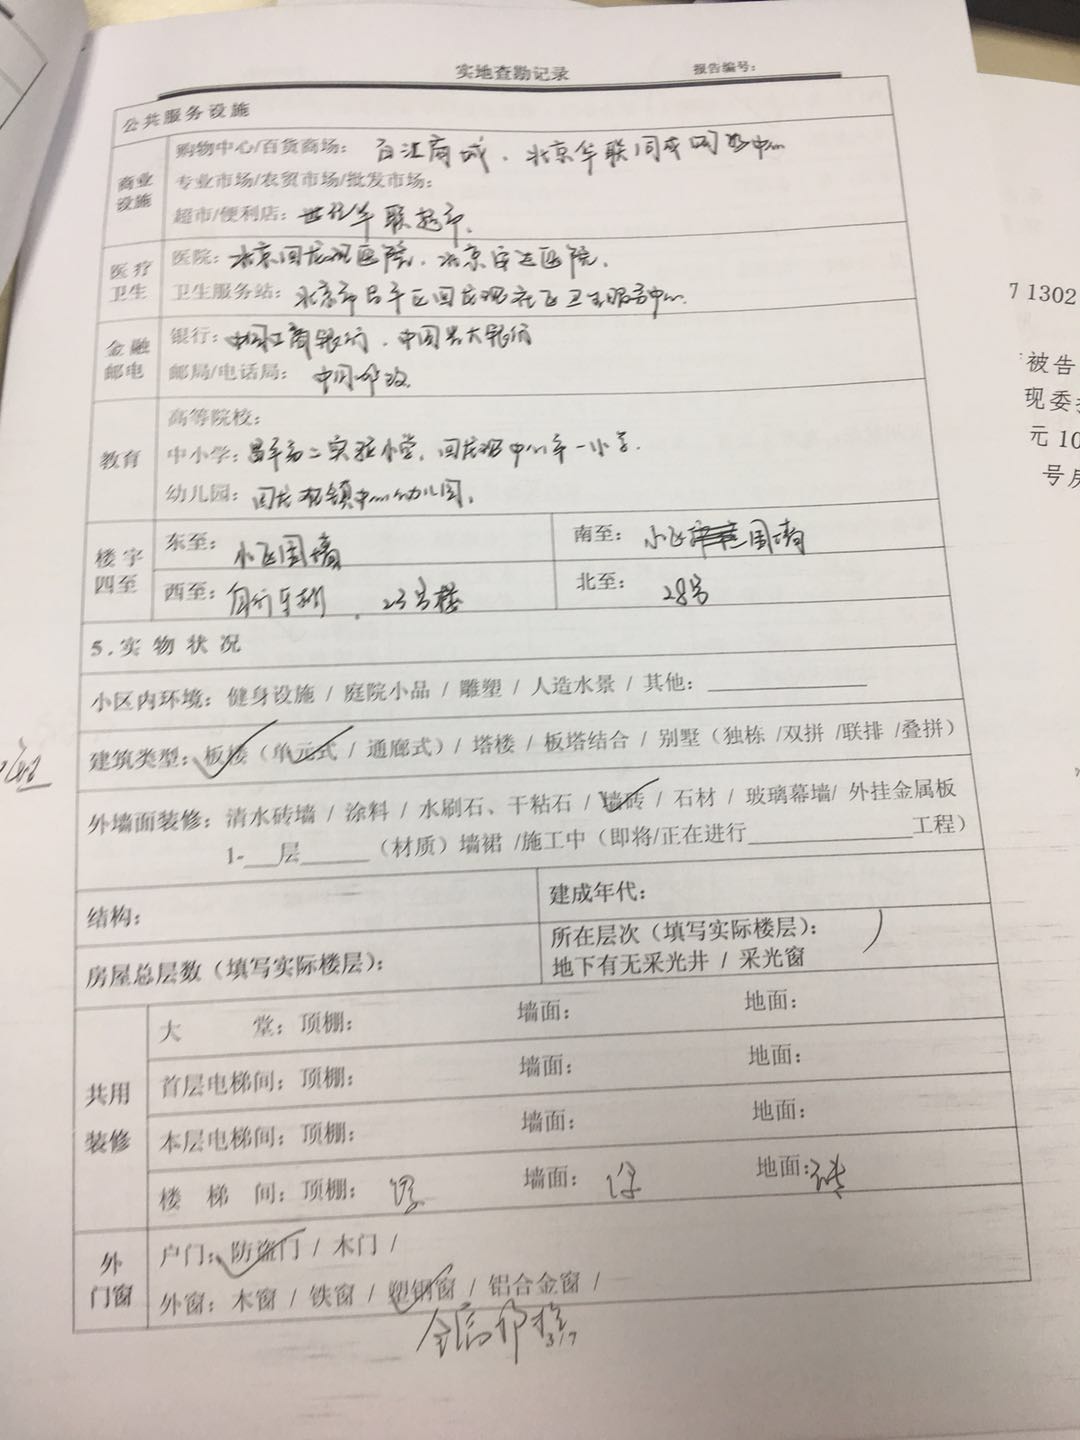 实地查勘记录 报告编号:
公共服务设施
商业设施
购物中心/百货商场: 百汇商城、北京华联同成购物中心
专业市场/农贸市场/批发市场:
超市/便利店: 世纪华联超市、
医疗卫生
医院: 北京回龙观医院、北京安定医院、
卫生服务站: 北京市昌平区回龙观社区卫生服务中心
金融邮电
银行: 中国工商银行、中国光大银行
邮局/电话局: 中国邮政
教育
高等院校:
中小学: 昌平第二实验小学、回龙观中心第一小学.
幼儿园: 回龙观镇中心幼儿园、
楼宇四至
东至: 小区围墙 南至: 小区围墙
西至: 自行车棚、23号楼 北至: 28号
5.实物状况
小区内环境: 健身设施 / 庭院小品 / 雕塑 / 人造水景 / 其他:
建筑类型: 板楼(单元式 / 通廊式)/ 塔楼 / 板塔结合 / 别墅(独栋 /双拼 /联排 /叠拼)
外墙面装修: 清水砖墙 / 涂料 / 水刷石、干粘石 / 墙砖 / 石材 / 玻璃幕墙/ 外挂金属板
1-___层______(材质)墙裙 /施工中(即将/正在进行______________工程)
结构: 建成年代:
房屋总层数(填写实际楼层): 所在层次(填写实际楼层):
地下有无采光井 / 采光窗
共用装修
大 堂: 顶棚: 墙面: 地面:
首层电梯间: 顶棚: 墙面: 地面:
本层电梯间: 顶棚: 墙面: 地面:
楼 梯 间: 顶棚: 墙面: 地面: 砖
外门窗
户门: 防盗门 / 木门 /
外窗: 木窗 / 铁窗 / 塑钢窗 / 铝合金窗 /
7 1302
被告
现委
元 10
号房